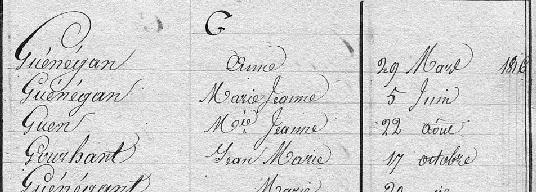 G
Guénégan Anne 29 Mars
Guénégan Marie Jeanne 5 Juin
Guen Mie Jeanne 22 août
Gourhant Jean Marie 17 octobre
Marie